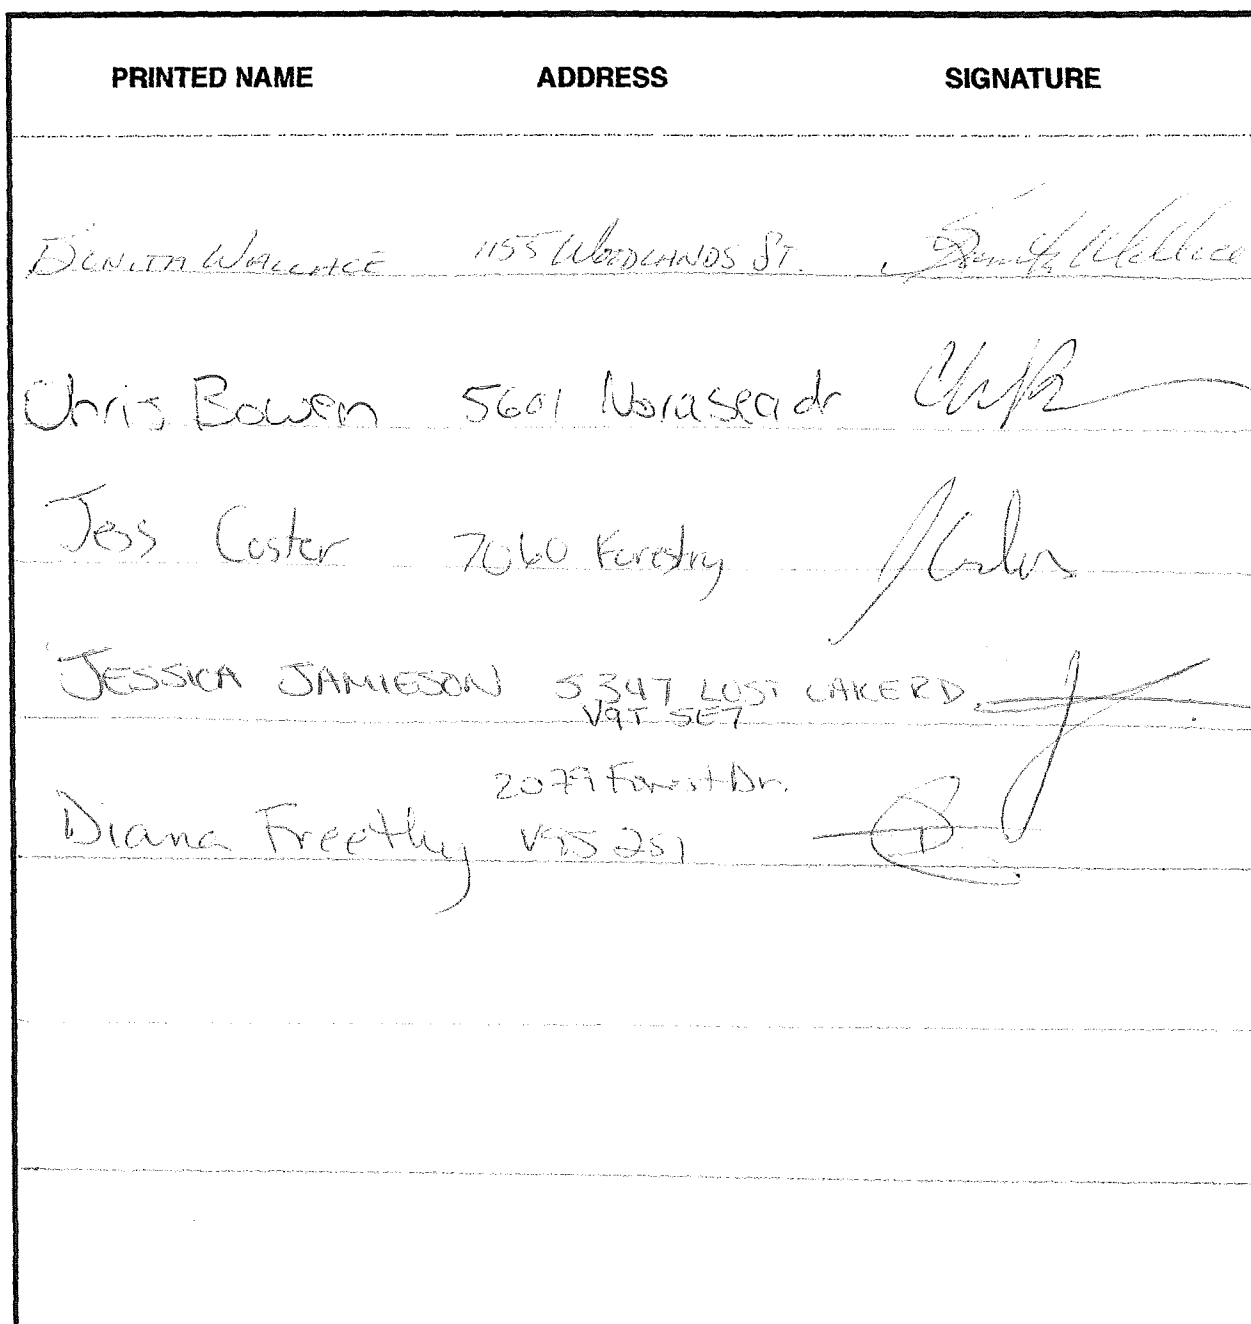 PRINTED NAME ADDRESS SIGNATURE
WALLACE 1155 WOODLANDS ST.
Chris Bowen 5601 Norasea dr
Jess Coster 7060 Forestry
JESSICA JAMIESON 5347 LOST LAKE RD
V9T 5E7
2079 Forest Dr.
Diana Freethy V9S 2S1